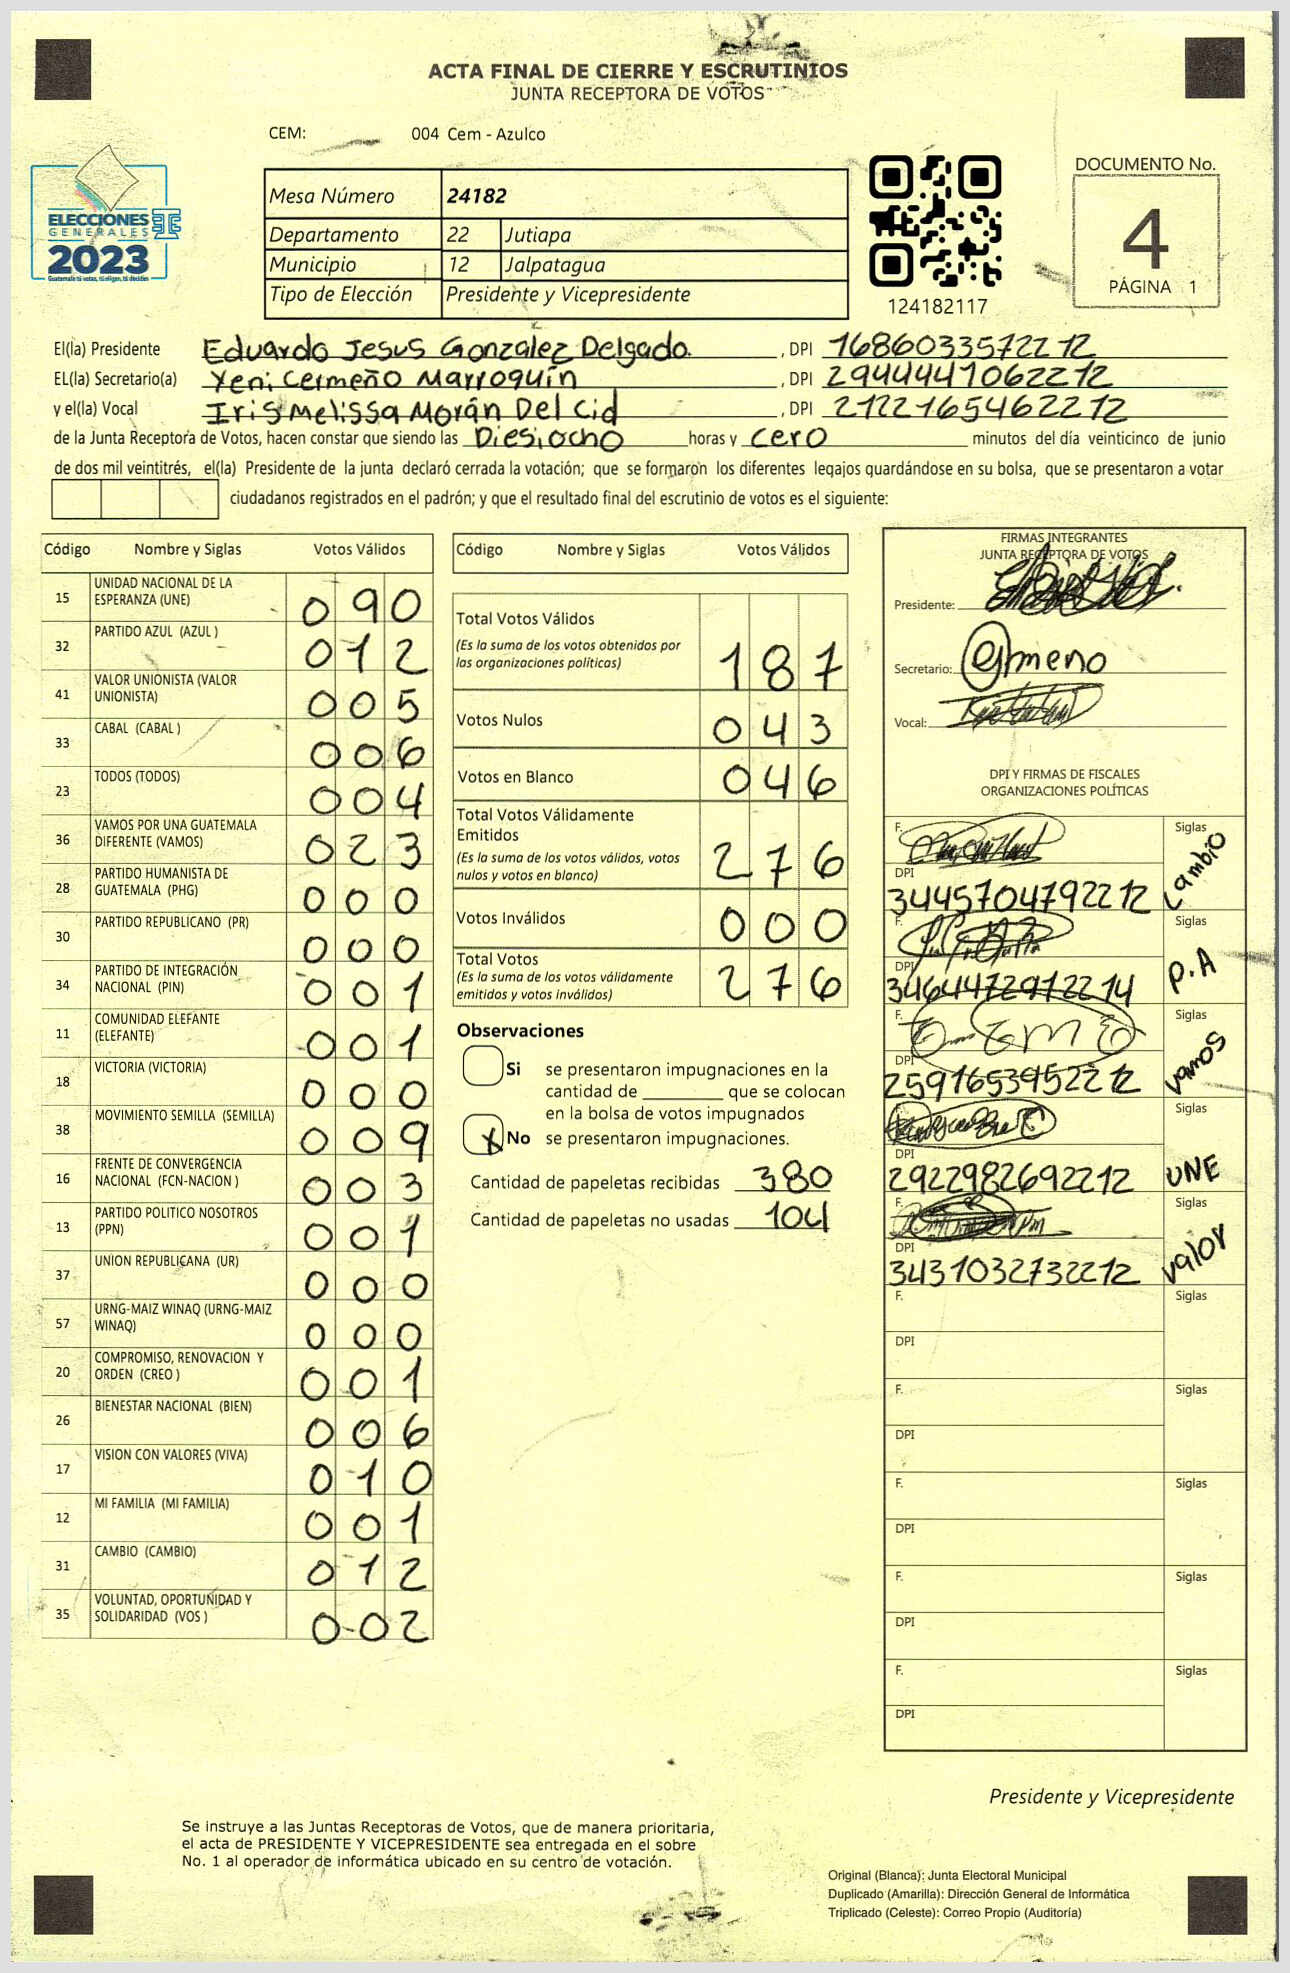 ACTA FINAL DE CIERRE Y ESCRUTINIOS
JUNTA RECEPTORA DE VOTOS
CEM: 004 Cem - Azulco
ELECCIONES
GENERALES
2023
Guatemala tú votas, tú eliges, tú decides
Mesa Número 24182
Departamento 22 Jutiapa
Municipio 12 Jalpatagua
Tipo de Elección Presidente y Vicepresidente
124182117
DOCUMENTO No.
4
PÁGINA 1
El(la) Presidente Eduardo Jesus Gonzalez Delgado. , DPI 1686033572212
EL(la) Secretario(a) Yeni Cermeño Marroquín , DPI 2944441062212
y el(la) Vocal Iris Melissa Morán Del Cid , DPI 2122165462212
de la Junta Receptora de Votos, hacen constar que siendo las Diesiocho horas y cero minutos del día veinticinco de junio
de dos mil veintitrés, el(la) Presidente de la junta declaró cerrada la votación; que se formaron los diferentes legajos quardándose en su bolsa, que se presentaron a votar
ciudadanos registrados en el padrón; y que el resultado final del escrutinio de votos es el siguiente:
Código Nombre y Siglas Votos Válidos
15 UNIDAD NACIONAL DE LA ESPERANZA (UNE) 090
32 PARTIDO AZUL (AZUL ) 012
41 VALOR UNIONISTA (VALOR UNIONISTA) 005
33 CABAL (CABAL ) 006
23 TODOS (TODOS) 004
36 VAMOS POR UNA GUATEMALA DIFERENTE (VAMOS) 023
28 PARTIDO HUMANISTA DE GUATEMALA (PHG) 000
30 PARTIDO REPUBLICANO (PR) 000
34 PARTIDO DE INTEGRACIÓN NACIONAL (PIN) 001
11 COMUNIDAD ELEFANTE (ELEFANTE) 001
18 VICTORIA (VICTORIA) 000
38 MOVIMIENTO SEMILLA (SEMILLA) 009
16 FRENTE DE CONVERGENCIA NACIONAL (FCN-NACION ) 003
13 PARTIDO POLITICO NOSOTROS (PPN) 001
37 UNION REPUBLICANA (UR) 000
57 URNG-MAIZ WINAQ (URNG-MAIZ WINAQ) 000
20 COMPROMISO, RENOVACION Y ORDEN (CREO ) 001
26 BIENESTAR NACIONAL (BIEN) 006
17 VISION CON VALORES (VIVA) 010
12 MI FAMILIA (MI FAMILIA) 001
31 CAMBIO (CAMBIO) 012
35 VOLUNTAD, OPORTUNIDAD Y SOLIDARIDAD (VOS ) 002
Código Nombre y Siglas Votos Válidos
Total Votos Válidos
(Es la suma de los votos obtenidos por
las organizaciones políticas) 187
Votos Nulos 043
Votos en Blanco 046
Total Votos Válidamente
Emitidos
(Es la suma de los votos válidos, votos
nulos y votos en blanco) 276
Votos Inválidos 000
Total Votos
(Es la suma de los votos válidamente
emitidos y votos inválidos) 276
Observaciones
Si se presentaron impugnaciones en la
cantidad de ________ que se colocan
en la bolsa de votos impugnados
X No se presentaron impugnaciones.
Cantidad de papeletas recibidas 380
Cantidad de papeletas no usadas 104
FIRMAS INTEGRANTES
JUNTA RECEPTORA DE VOTOS
Presidente:
Secretario:
Vocal:
DPI Y FIRMAS DE FISCALES
ORGANIZACIONES POLÍTICAS
F. Siglas Cambio
DPI 3445704792212
F. Siglas P.A
DPI 3464472912214
F. Siglas Vamos
DPI 2591653952212
Siglas UNE
DPI 2922982692212
F. Siglas Valor
DPI 3431032732212
F. Siglas
DPI
F. Siglas
DPI
F. Siglas
DPI
F. Siglas
DPI
F. Siglas
DPI
Presidente y Vicepresidente
Se instruye a las Juntas Receptoras de Votos, que de manera prioritaria,
el acta de PRESIDENTE Y VICEPRESIDENTE sea entregada en el sobre
No. 1 al operador de informática ubicado en su centro de votación.
Original (Blanca): Junta Electoral Municipal
Duplicado (Amarilla): Dirección General de Informática
Triplicado (Celeste): Correo Propio (Auditoría)